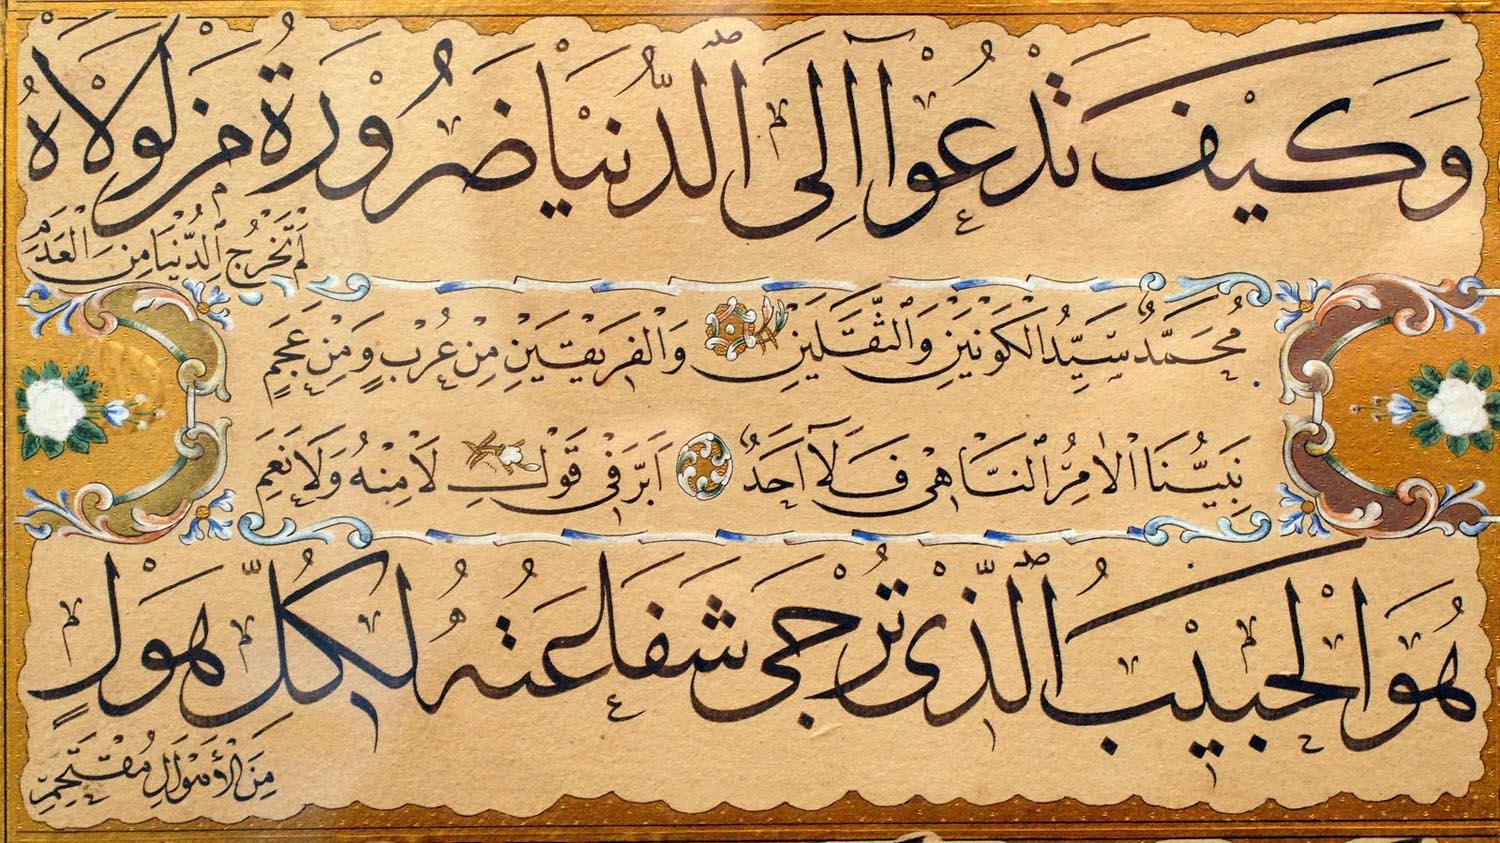 وَكَيْفَ تَدْعُوا إِلَى الدُّنْيَا ضَرُورَةُ مَنْ لَوْلَاهُ
لَمْ تَخْرُجِ الدُّنْيَا مِنَ الْعَدَمِ
مُحَمَّدٌ سَيِّدُ الْكَوْنَيْنِ وَالثَّقَلَيْنِ وَالْفَرِيقَيْنِ مِنْ عُرْبٍ وَمِنْ عَجَمِ
نَبِيُّنَا الْآمِرُ النَّاهِي فَلَا أَحَدٌ أَبَرَّ فِي قَوْلِ لَا مِنْهُ وَلَا نَعَمِ
هُوَ الْحَبِيبُ الَّذِي تُرْجَى شَفَاعَتُهُ لِكُلِّ هَوْلٍ
مِنَ الْأَهْوَالِ مُقْتَحَمِ